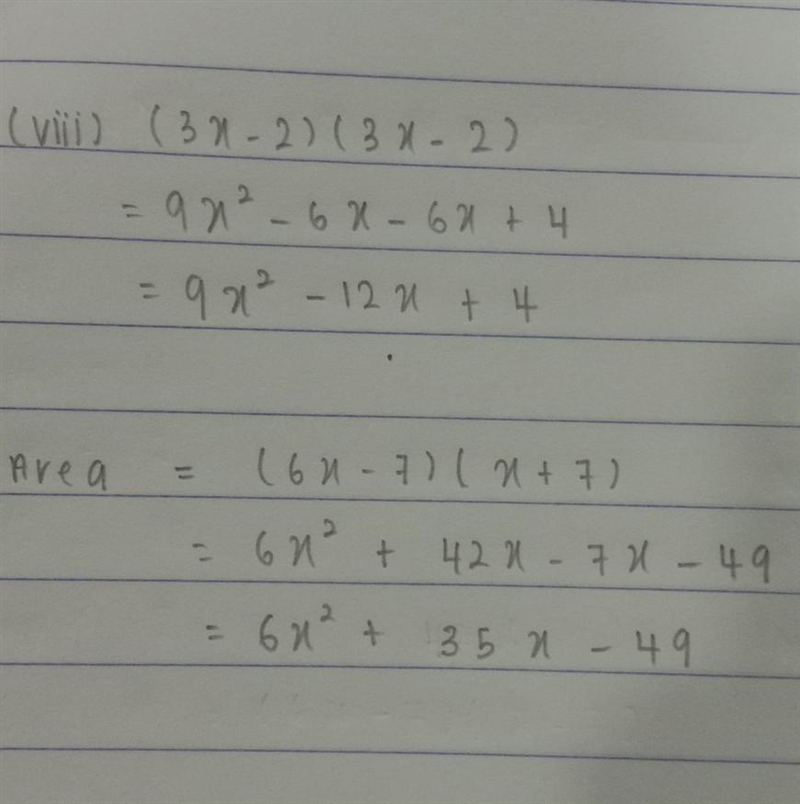 (viii) (3x - 2)(3x - 2)
= 9x² - 6x - 6x + 4
= 9x² - 12x + 4
Area = (6x - 7)(x + 7)
= 6x² + 42x - 7x - 49
= 6x² + 35x - 49